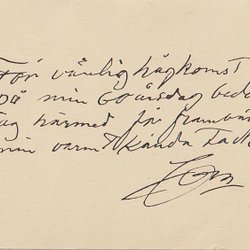 För vänlig hågkomst
på min 60 årsdag bed
jag härmed få frambär
min varmt kända tack